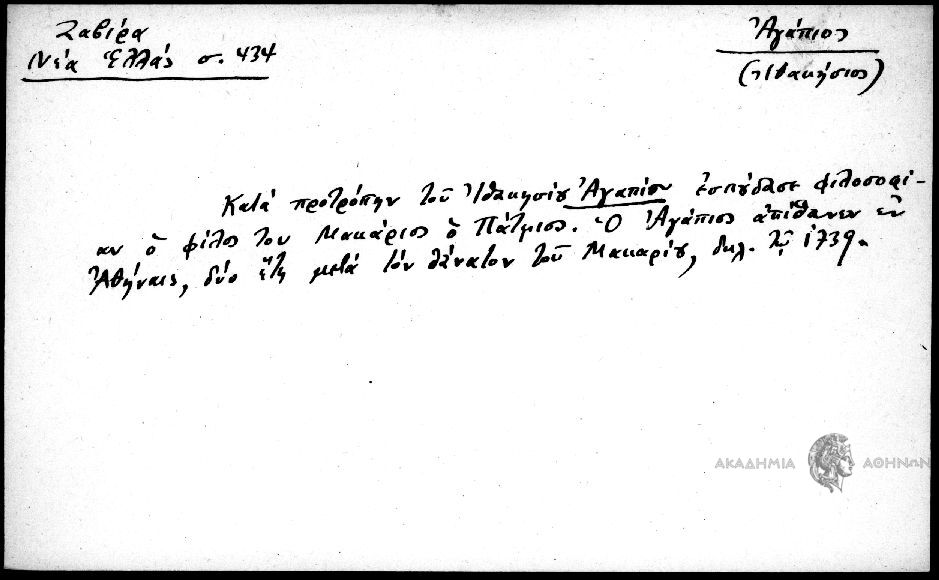 Ζαβίρα
Νέα Ἑλλάς σ. 434
Ἀγάπιος
(Ἰθακήσιος)
Κατά προτρόπην τοῦ Ἰθακησίου Ἀγαπίου ἐσπούδασε φιλοσοφί-
αν ὁ φίλος του Μακάριος ὁ Πάτμιος. Ὁ Ἀγάπιος ἀπέθανεν ἐν
Ἀθήναις, δύο ἔτη μετά τόν θάνατον τοῦ Μακαρίου, δηλ. τῷ 1739.
ΑΚΑΔΗΜΙΑ ΑΘΗΝΩΝ